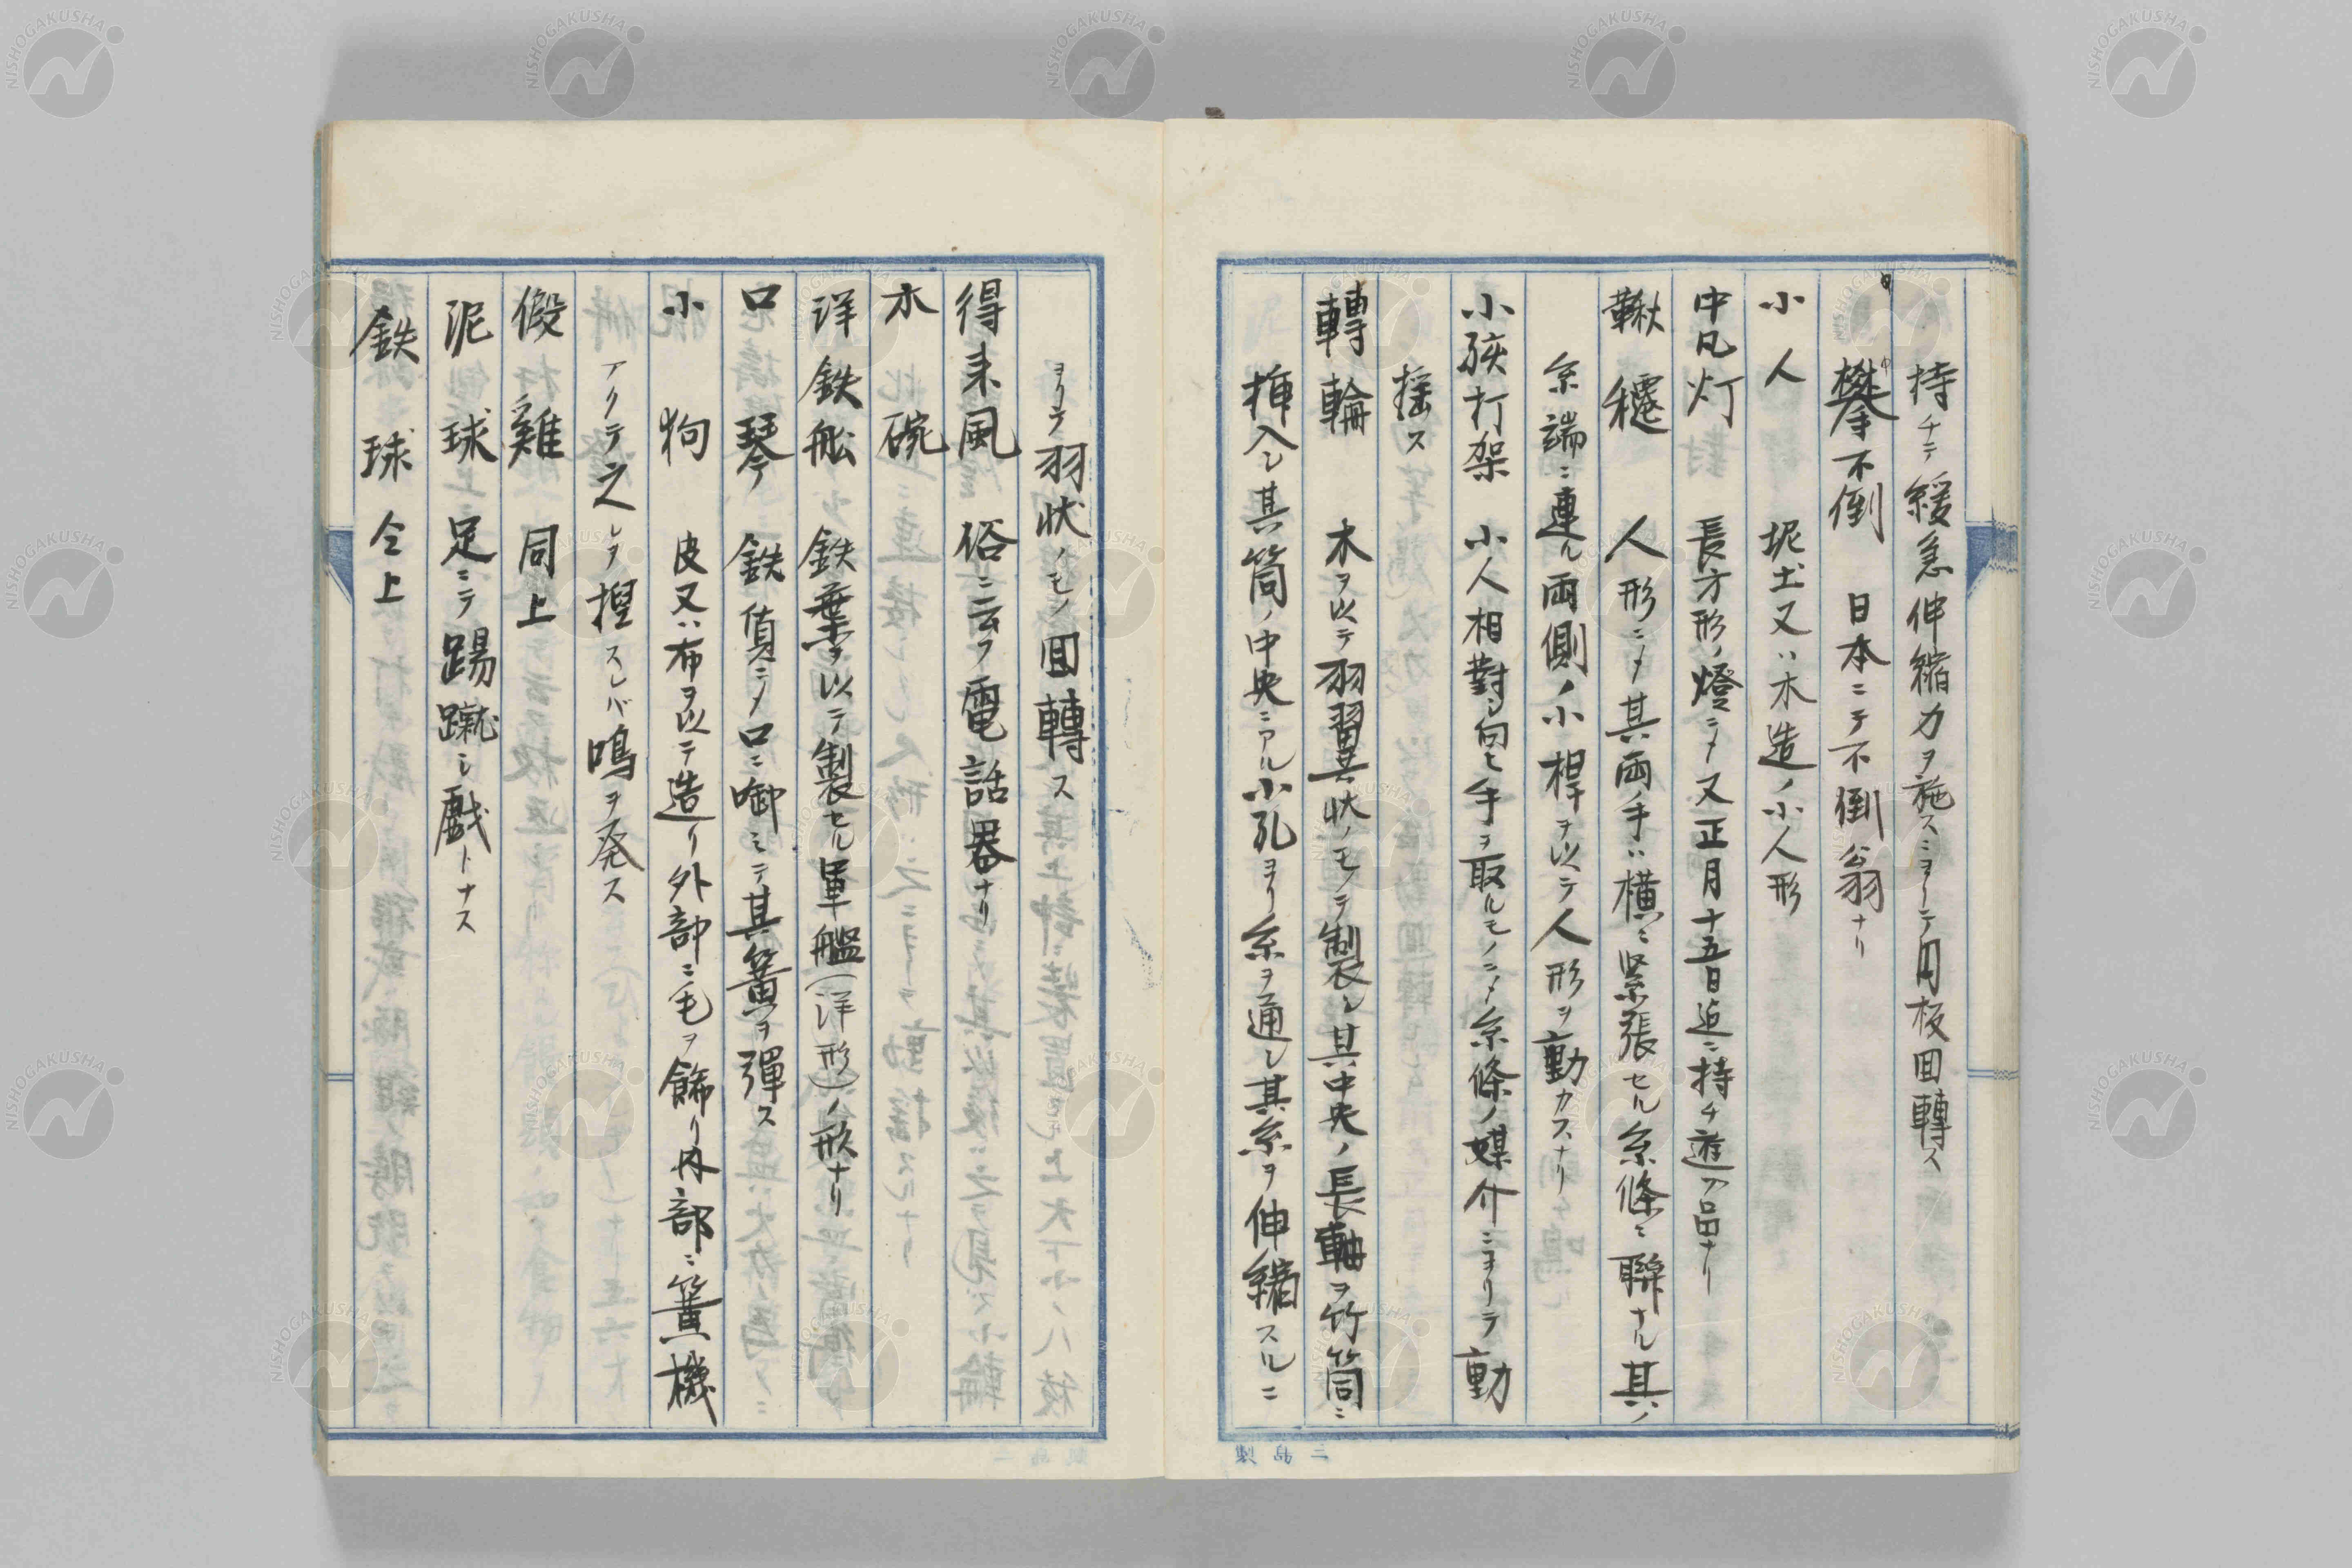 持チテ緩急伸縮力ヲ施スニヨリテ円板回轉ス
攀不倒 日本ニテ不倒翁ナリ
小人 坭土又ハ木造ノ小人形
中凡灯 長方形ノ燈ニメ又正月十五日迠ニ持チ遊ブ品ナリ
鞦韆 人形ニメ其両手ハ横ニ緊張セル糸條ニ聯ナル其ノ
糸端ニ連ル両側ノ小桿ヲ以テ人形ヲ動カスナリ
小孩打架 小人相對シ向ヒ手ヲ取ルモノニメ糸條ノ媒介ニヨリテ動
揺ス
轉輪 木ヲ以テ羽翼状ノモノヲ製シ其中央ノ長軸ヲ竹筒ニ
挿入シ其筒ノ中央ニアル小孔ヨリ糸ヲ通シ其糸ヲ伸縮スルニ
ヨリテ羽状ノモノ回轉ス
得来風 俗ニ云フ電話器ナリ
木碗
洋鉄舩 鉄葉ヲ以テ製セル軍艦(洋形)ノ形ナリ
口琴 鉄質ニメ口ニ啣ミテ其簧ヲ彈ス
小狗 皮又ハ布ヲ以テ造リ外部ニ毛ヲ飾リ内部ニ簧機
アリテ之レヲ揑スレバ鳴ヲ発ス
假雞 同上
泥球 足ニテ踢蹴シ戯トナス
鉄球 仝上
NISHOGAKUSHA